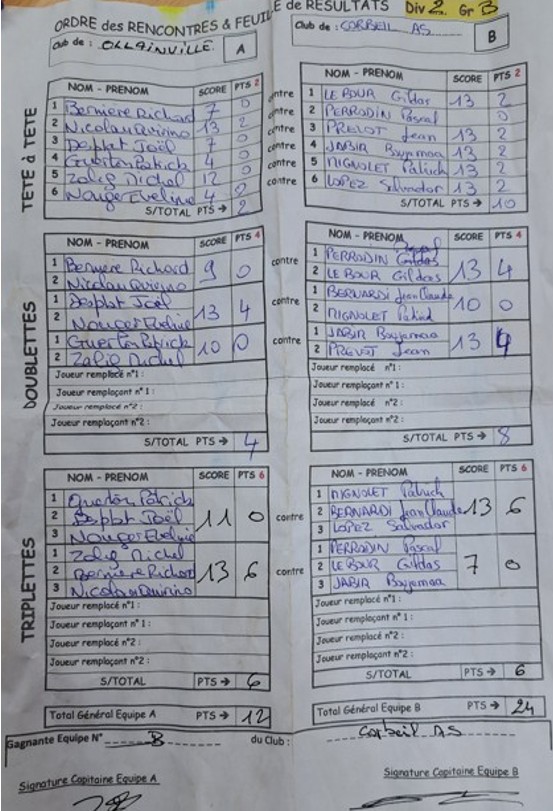 ORDRE des RENCONTRES & FEUIL E de RESULTATS Div 2 Gr B
Club de : OLLAINVILLE A
Club de : CORBEIL AS B
TETE à TETE
NOM - PRENOM SCORE PTS 2
1 Berniere Richard 7 0
2 Nicolau Quirino 13 2
3 Desplat Joël 7 0
4 Guerton Patrick 4 0
5 Zalig Michel 12 0
6 Nouger Eveline 4 0
S/TOTAL PTS → 2
contre
contre
contre
contre
contre
contre
NOM - PRENOM SCORE PTS 2
1 LE BOUR Gildas 13 2
2 PERRODIN Pascal 0
3 PREVOT Jean 13 2
4 JABIR Boujemaa 13 2
5 MIGNOLET Patrick 13 2
6 LOPEZ Salvador 13 2
S/TOTAL PTS → 10
DOUBLETTES
NOM - PRENOM SCORE PTS 4
1 Berniere Richard 9 0
2 Nicolau Quirino
1 Desplat Joël 13 4
2 Nouger Eveline
1 Guerton Patrick 10 0
2 Zalig Michel
Joueur remplacé n°1 :
Joueur remplaçant n° 1 :
Joueur remplacé n°2 :
Joueur remplaçant n°2 :
S/TOTAL PTS → 4
contre
contre
contre
NOM - PRENOM SCORE PTS 4
1 PERRODIN Pascal 13 4
2 LE BOUR Gildas
1 BERNARDI Jean Claude 10 0
2 MIGNOLET Patrick
1 JABIR Boujemaa 13 4
2 PREVOT Jean
Joueur remplacé n°1 :
Joueur remplaçant n°1 :
Joueur remplacé n°2 :
Joueur remplaçant n°2:
S/TOTAL PTS → 8
TRIPLETTES
NOM - PRENOM SCORE PTS 6
1 Guerton Patrick
2 Desplat Joël 11 0
3 Nouger Eveline
1 Zalig Michel
2 Berniere Richard 13 6
3 Nicolau Quirino
Joueur remplacé n°1 :
Joueur remplaçant n° 1 :
Joueur remplacé n°2 :
Joueur remplaçant n°2 :
S/TOTAL PTS → 6
contre
contre
NOM - PRENOM SCORE PTS 6
1 MIGNOLET Patrick
2 BERNARDI Jean Claude 13 6
3 LOPEZ Salvador
1 PERRODIN Pascal
2 LE BOUR Gildas 7 0
3 JABIR Boujemaa
Joueur remplacé n°1 :
Joueur remplaçant n°1 :
Joueur remplacé n°2 :
Joueur remplaçant n°2:
S/TOTAL PTS → 6
Total Général Equipe A PTS → 12
Total Général Equipe B PTS → 24
Gagnante Equipe N° B du Club : Corbeil AS
Signature Capitaine Equipe A
Signature Capitaine Equipe B